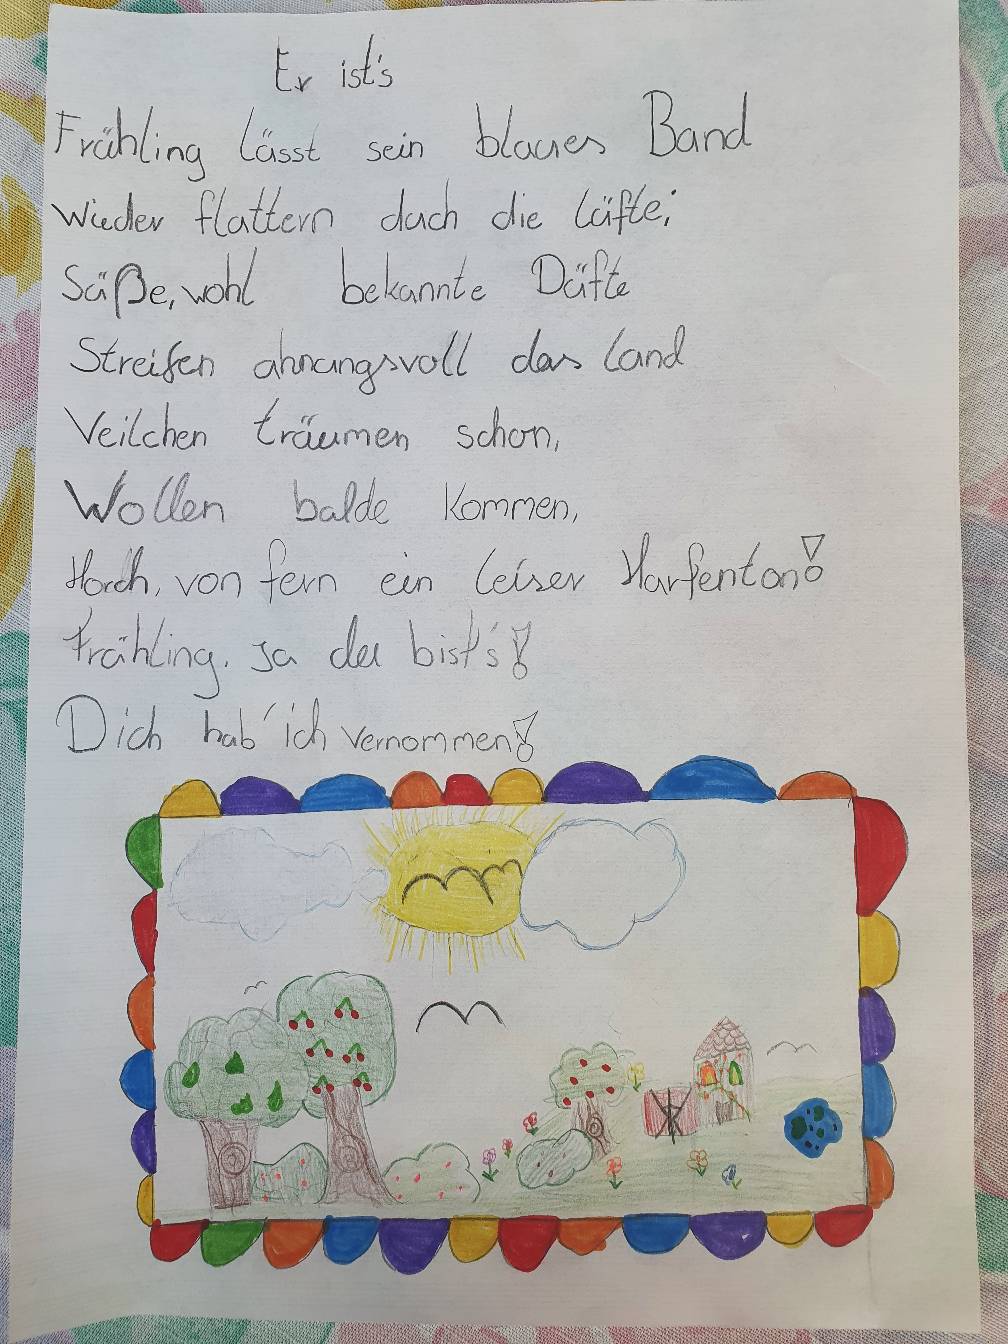 Er ist's
Frühling lässt sein blaues Band
Wieder flattern duch die Lüfte;
Süße, wohl bekannte Düfte
Streifen ahnungsvoll das Land
Veilchen träumen schon,
Wollen balde kommen,
Horch, von fern ein leiser Harfenton!
Frühling. Ja du bist's!
Dich hab' ich vernommen!